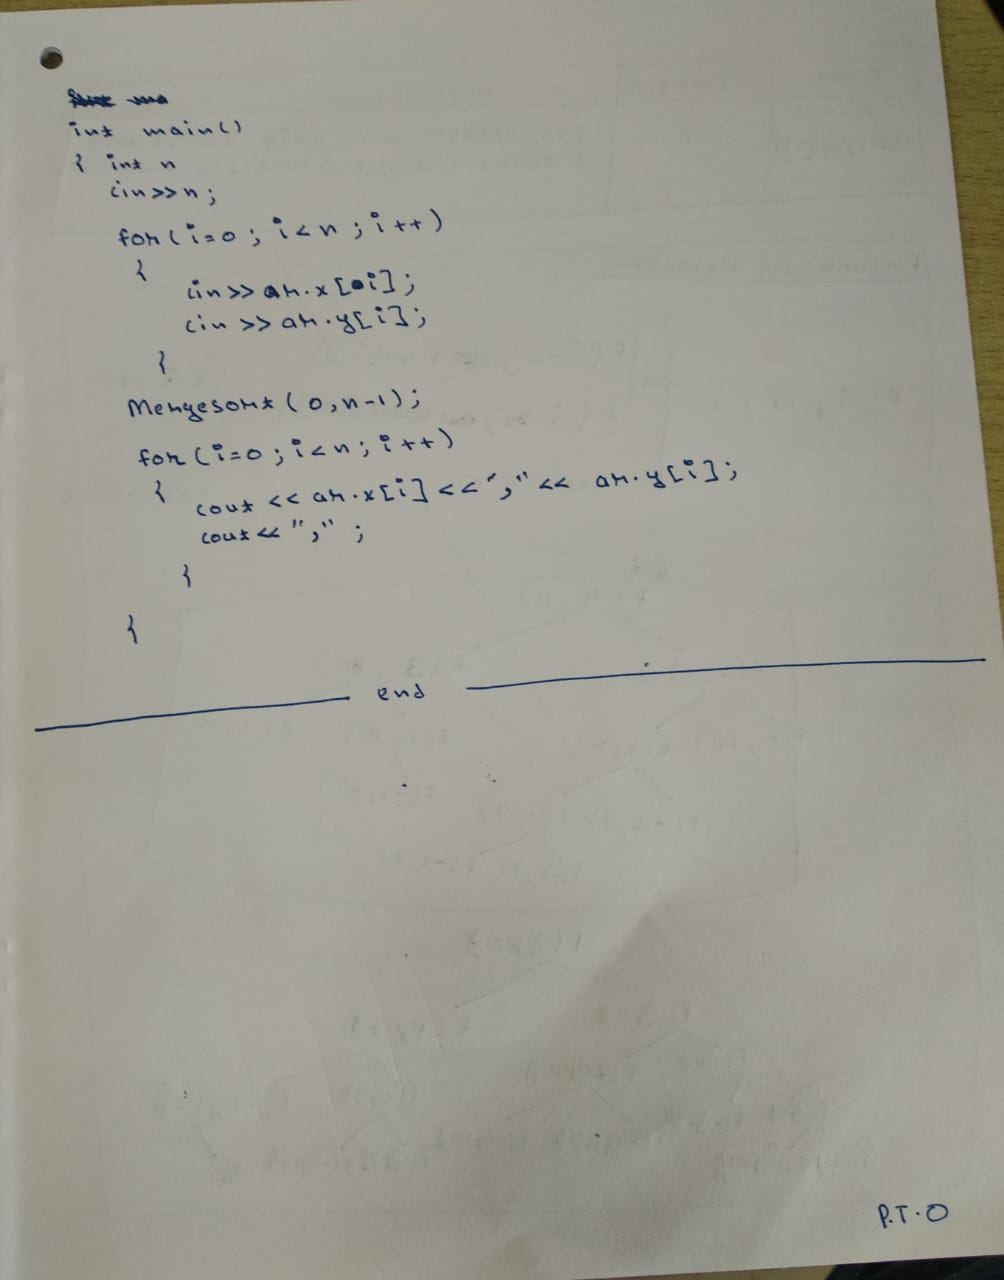 int main()
{ int n
cin>>n;
for(i=0; i<n; i++)
{
cin>> ar.x[i];
cin >> ar.y[i];
}
Mergesort(0,n-1);
for(i=0; i<n; i++)
{
cout << ar.x[i] <<","<< ar.y[i];
cout<< "," ;
}
}
end
P.T.O